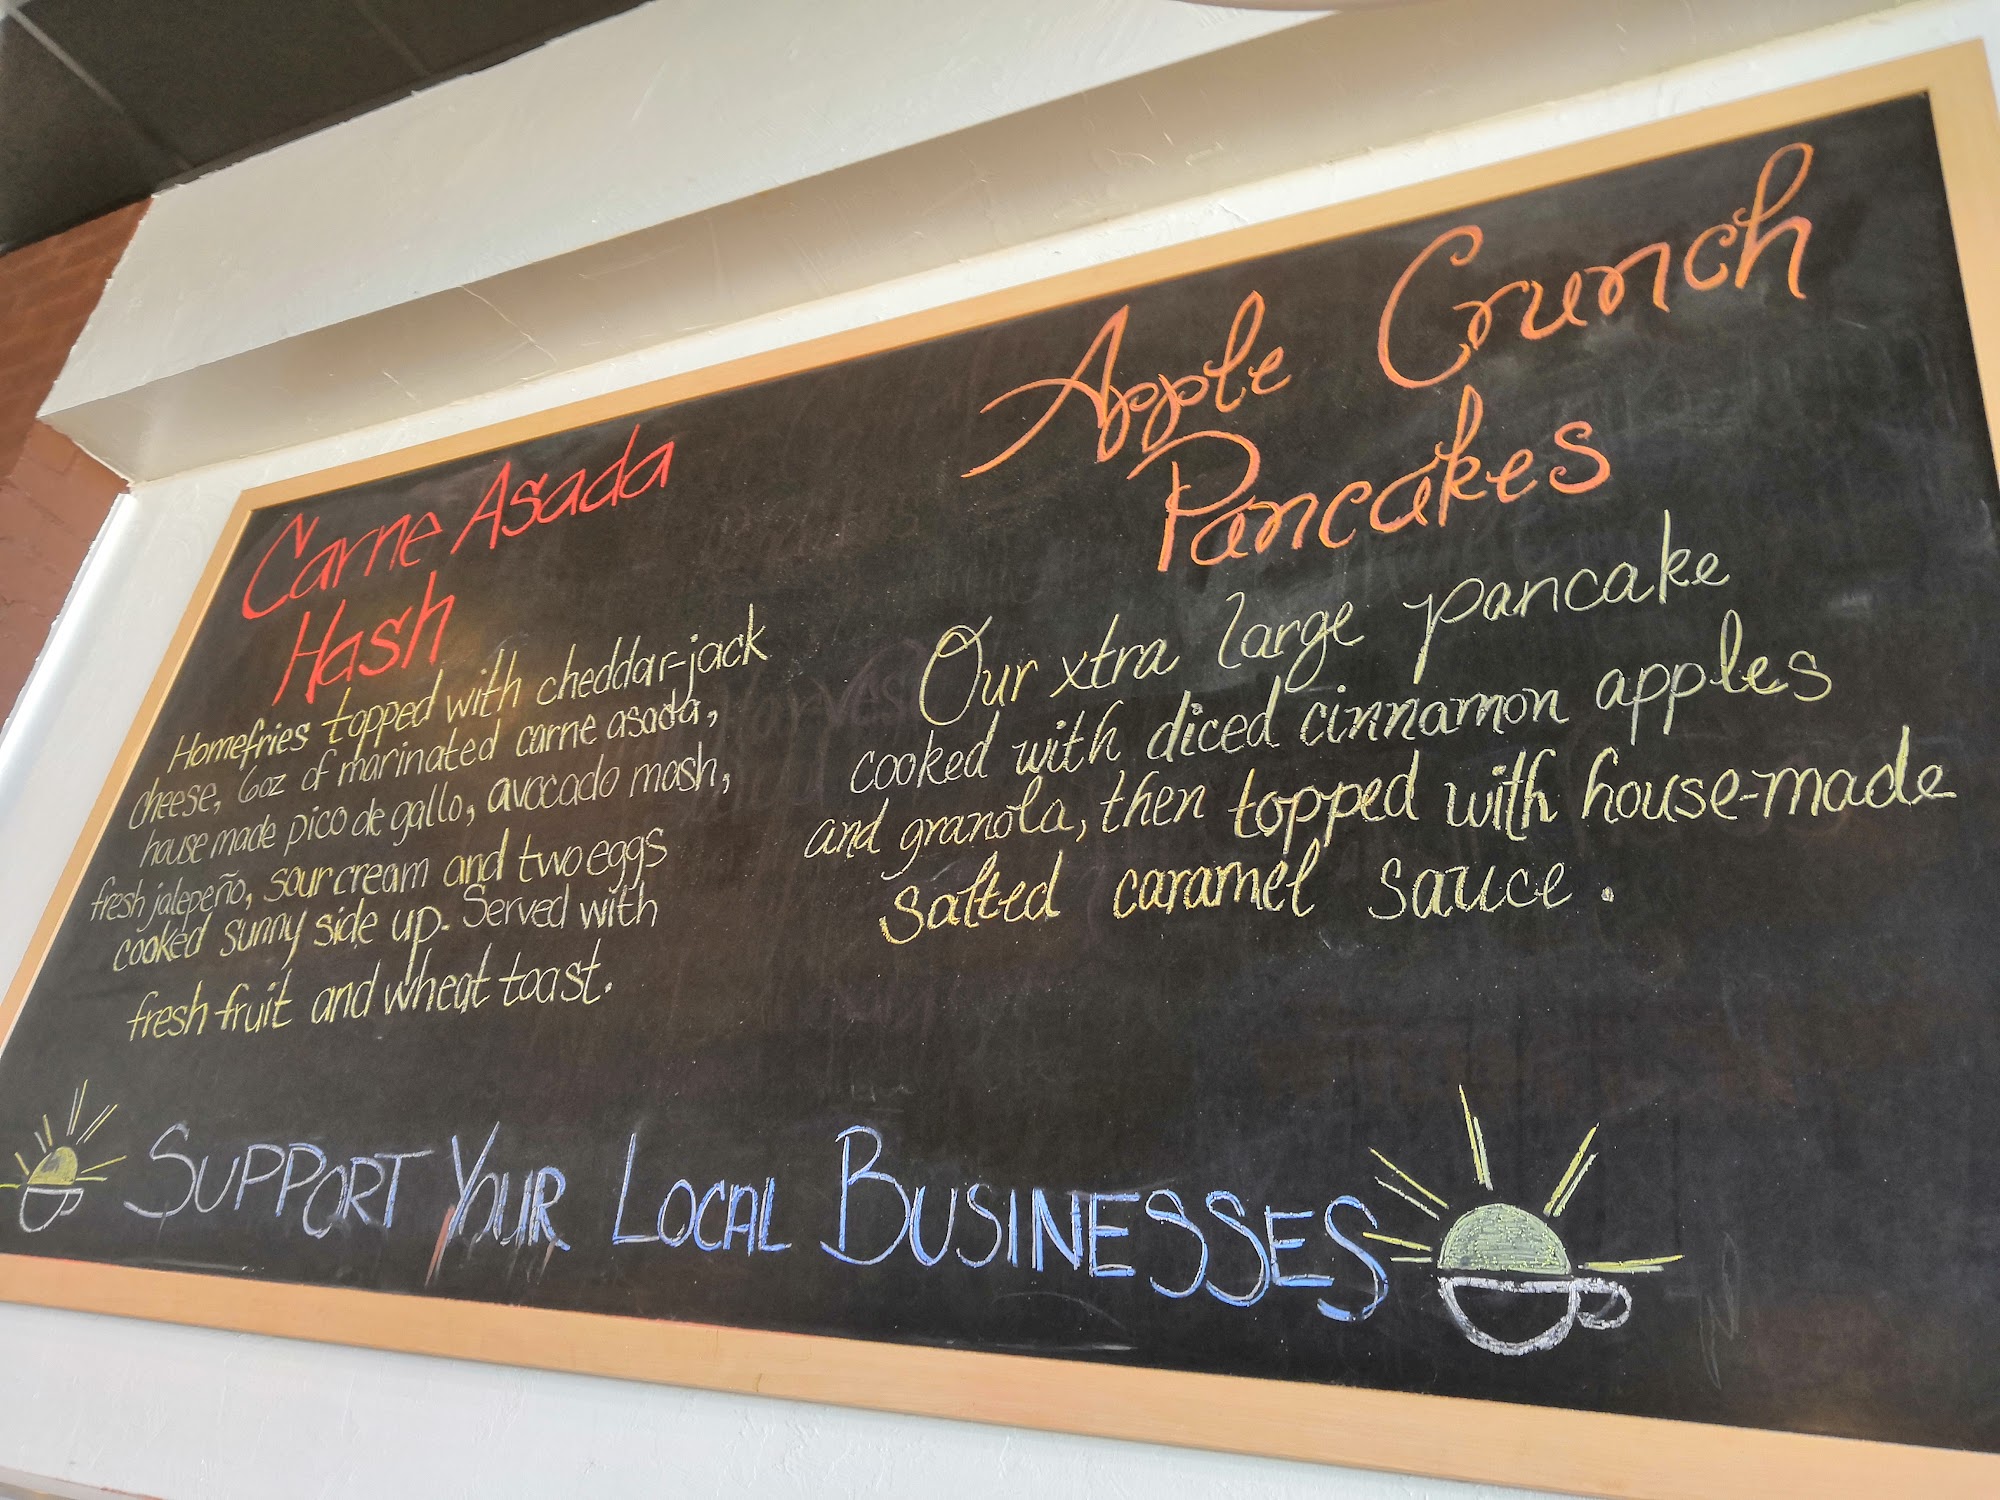 Carne Asada
Hash
Homefries topped with cheddar-jack
cheese, 6oz of marinated carne asada,
house made pico de gallo, avocado mash,
fresh jalepeño, sour cream and two eggs
cooked sunny side up. Served with
fresh fruit and wheat toast.
Apple Crunch
Pancakes
Our xtra large pancake
cooked with diced cinnamon apples
and granola, then topped with house-made
salted caramel sauce.
SUPPORT YOUR LOCAL BUSINESSES